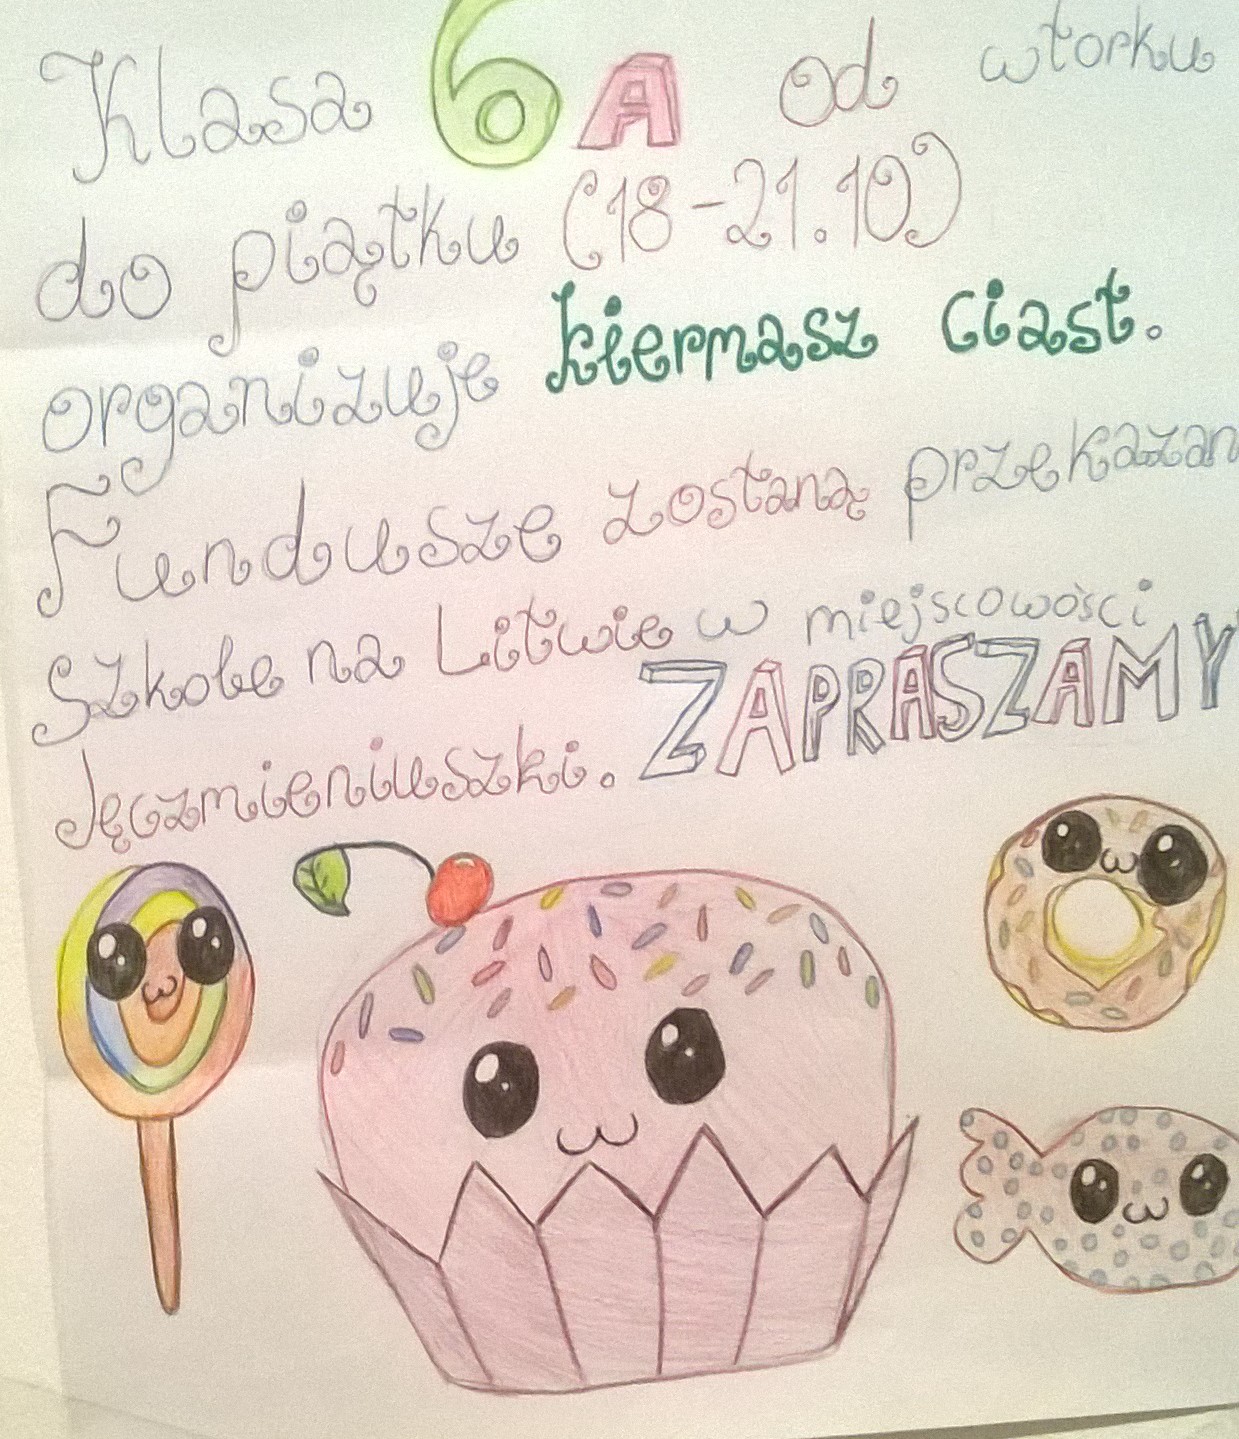 Klasa 6A od wtorku
do piątku (18-21.10)
organizuje kiermasz ciast.
Fundusze zostaną przekazan
szkole na Litwie w miejscowości
Jęczmieniuszki. ZAPRASZAMY